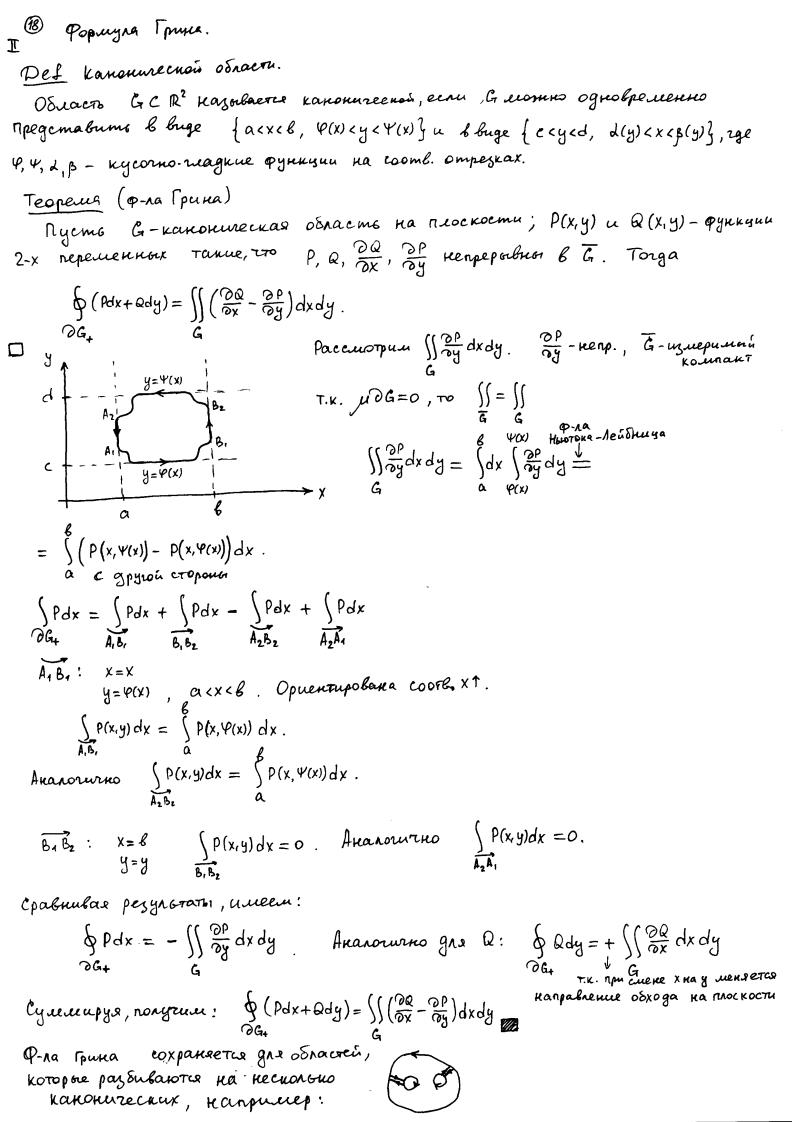 II (18) Формула Грина.
Def канонической области.
Область G ⊂ ℝ² называется канонической, если G можно одновременно
представить в виде {a<x<b, φ(x)<y<ψ(x)} и в виде {c<y<d, α(y)<x<β(y)}, где
φ, ψ, α, β – кусочно-гладкие функции на соотв. отрезках.
Теорема (ф-ла Грина)
Пусть G – каноническая область на плоскости; P(x,y) и Q(x,y) – функции
2-х переменных такие, что P, Q, ∂Q/∂x, ∂P/∂y непрерывны в G̅. Тогда
∮_{∂G₊} (Pdx + Qdy) = ∬_G (∂Q/∂x - ∂P/∂y) dxdy.
□
y
d
c
a
b
x
y=ψ(x)
A₂
B₂
A₁
B₁
y=φ(x)
Рассмотрим ∬_G ∂P/∂y dxdy. ∂P/∂y – непр., G̅ – измеримый
компакт
т.к. μ∂G=0, то ∬_G̅ = ∬_G
ф-ла
Ньютона-Лейбница
∬_G ∂P/∂y dxdy = ∫_a^b dx ∫_{φ(x)}^{ψ(x)} ∂P/∂y dy =
= ∫_a^b (P(x,ψ(x)) - P(x,φ(x))) dx.
с другой стороны
∫_{∂G₊} Pdx = ∫_{A₁B₁} Pdx + ∫_{B₁B₂} Pdx - ∫_{A₂B₂} Pdx + ∫_{A₂A₁} Pdx
A₁B₁: x=x
y=φ(x), a<x<b. Ориентирована соотв. x↑.
∫_{A₁B₁} P(x,y)dx = ∫_a^b P(x,φ(x)) dx.
Аналогично ∫_{A₂B₂} P(x,y)dx = ∫_a^b P(x,ψ(x))dx.
B₁B₂: x=b
y=y ∫_{B₁B₂} P(x,y)dx=0. Аналогично ∫_{A₂A₁} P(x,y)dx=0.
Сравнивая результаты, имеем:
∮_{∂G₊} Pdx = - ∬_G ∂P/∂y dxdy. Аналогично для Q: ∮_{∂G₊} Qdy = + ∬_G ∂Q/∂x dxdy
т.к. при смене x на y меняется
направление обхода на плоскости
Суммируя, получим: ∮_{∂G₊} (Pdx+Qdy) = ∬_G (∂Q/∂x - ∂P/∂y) dxdy ■
Ф-ла Грина сохраняется для областей,
которые разбиваются на несколько
канонических, например: